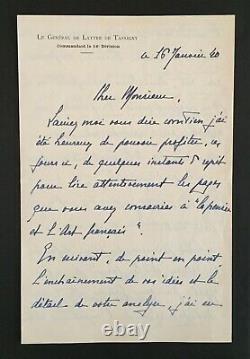 LE GÉNÉRAL DE LATTRE DE TASSIGNY
Commandant la 14e Division
le 16 Janvier 40
Cher Monsieur,
Laissez moi vous dire combien j'ai
été heureux de pouvoir profiter, ces
jours ci, de quelques instants de répit
pour lire attentivement les pages
que vous avez consacrées à "la pensée
et l'Art français".
En suivant, de point en point
l'enchaînement de vos idées et le
détail de votre analyse, j'ai eu